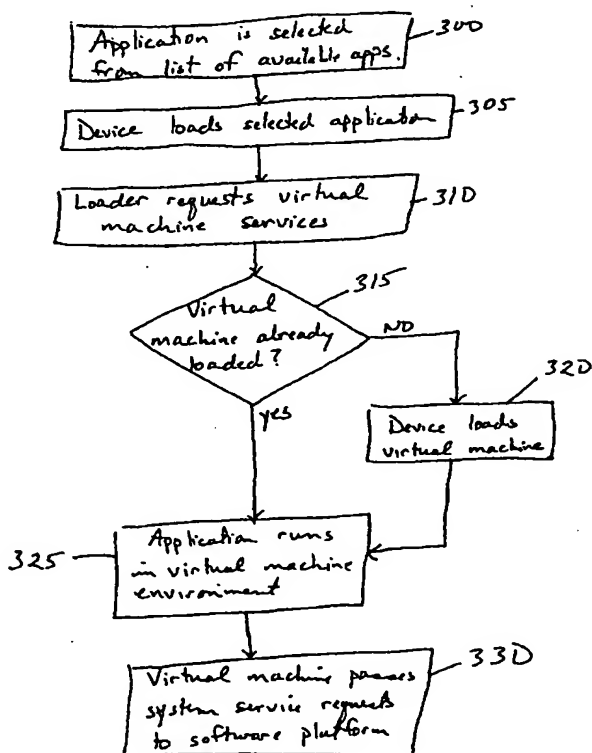 Application is
from list of available apps.
selected
300
Device loads selected application
305
Loader requests virtual
machine services
310
Virtual
machine already
loaded?
315
NO
yes
320
Device loads
virtual machine
325
Application runs
in virtual machine
environment
Virtual machine passes
system service requests
to software platform
330